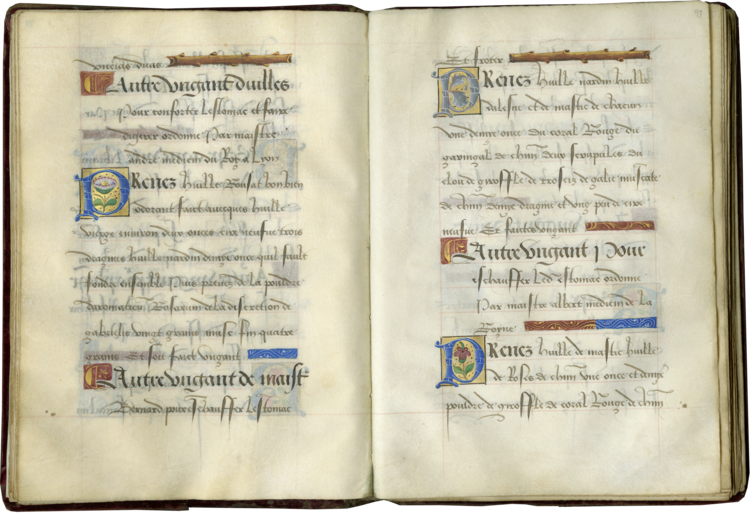 Autre ungant duilles
pour conforter lestomac et faire
digerer ordonne par maistre
andre medecin du Roy a Lyon
PRenez huille Rousat bon bien
odorant faict avecques huille
vierge environ deux onces cire neufve trois
dragmes huille nardin demye once quil faille
fondre ensemble puis prenez de la pouldre
daromaticum Rosarum de la discretion de
gabelle vingt grains mastic fin quatre
grains Et soit faict ungant
Autre ungant de maist
Bernard pour eschauffer lestomac
Et froter
PRenez huille nardin huille
daluyne et de mastic de chacun
une demye once du coral Rouge du
garingal de chun deux scrupules du
clou de giroffle de trosciz de galie muscate
de chun demye dragme et ung peu de cire
neufve Et faictes ungant
Autre ungant pour
eschauffer led estomac ordonne
Par maistre albert medecin de La
Royne
PRenez huille de mastic huille
de Roses de chun une once et demye
pouldre de giroffle de coral Rouge de chun